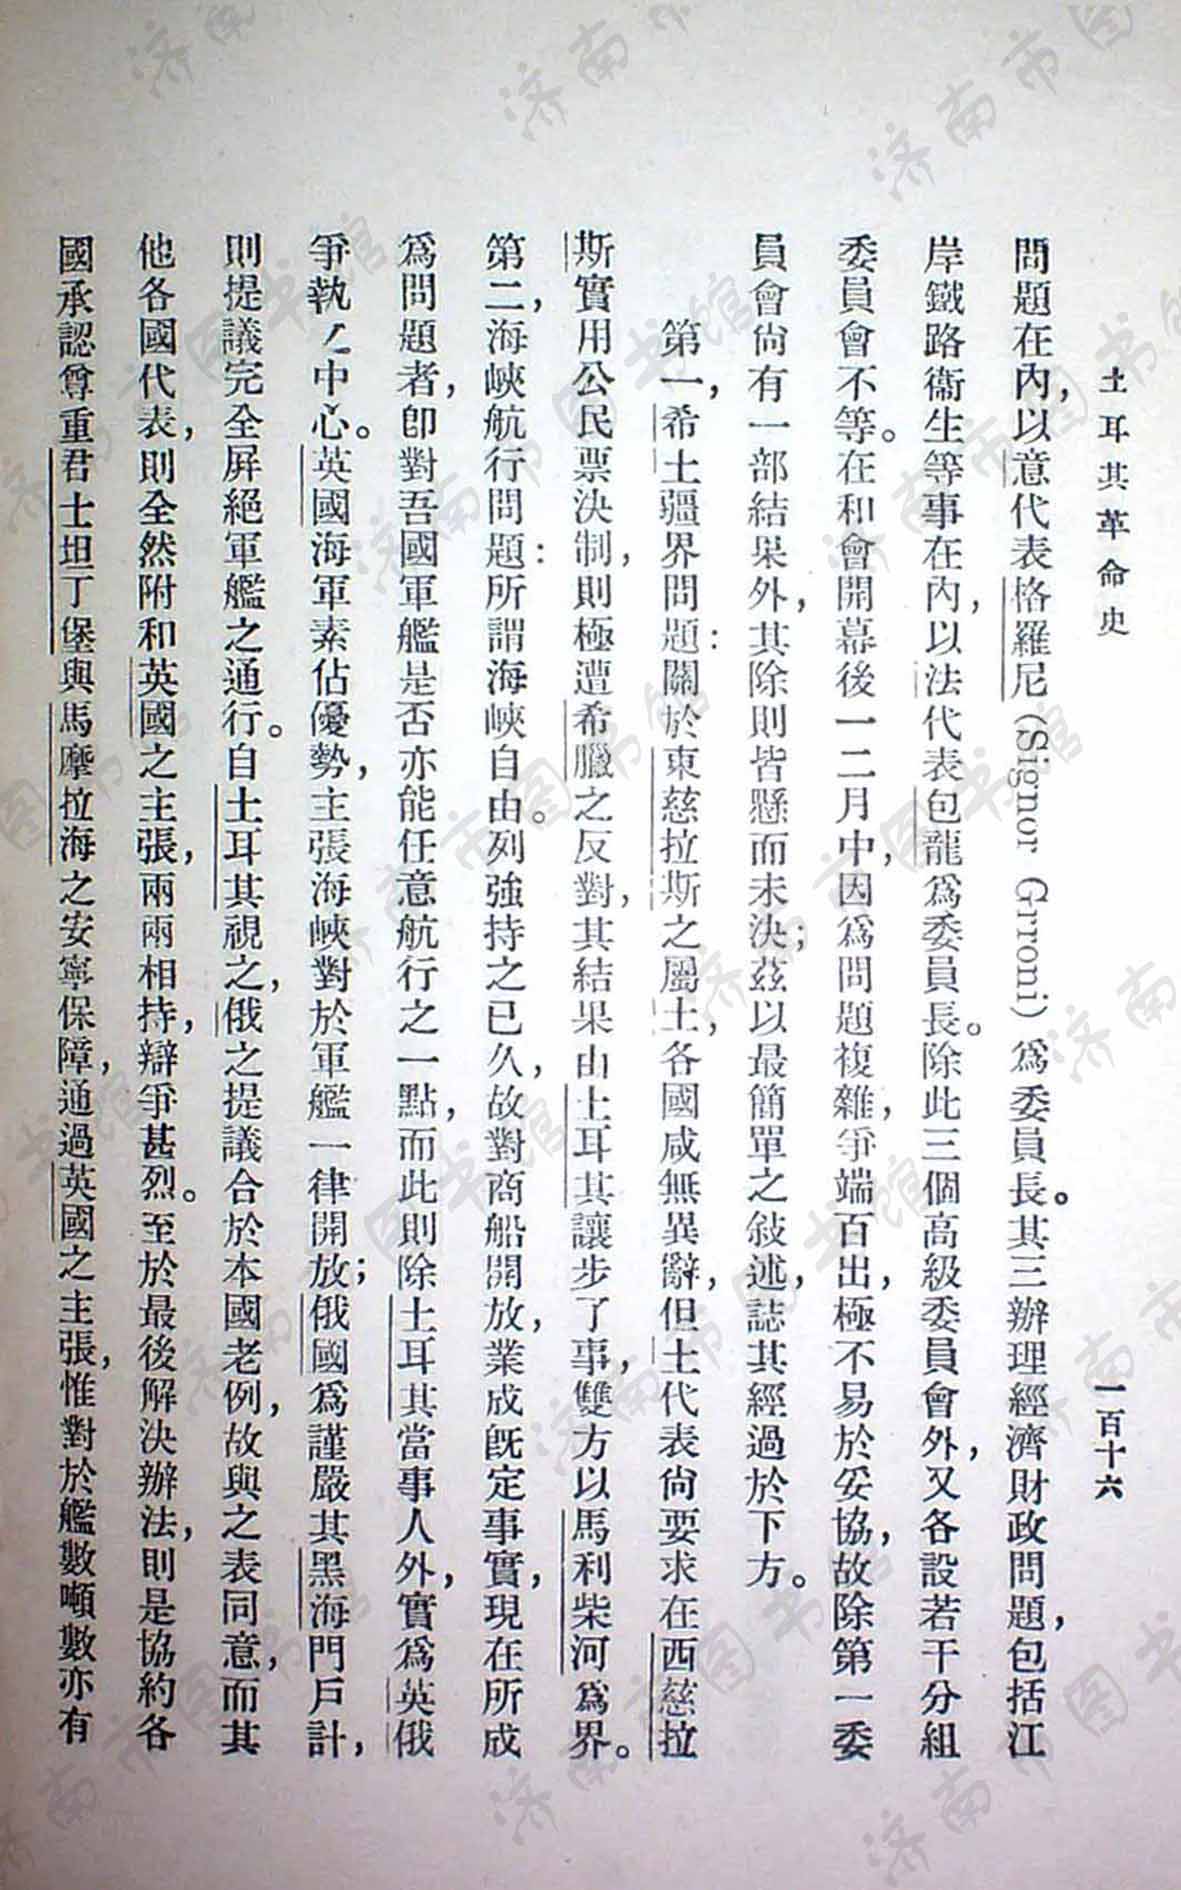 土耳其革命史
一百十六
問題在內，以意代表格羅尼（Signor Grroni）爲委員長。其三辦理經濟財政問題，包括江
岸鐵路衞生等事在內，以法代表包龍爲委員長。除此三個高級委員會外，又各設若干分組
委員會不等。在和會開幕後一二月中，因爲問題複雜，爭端百出，極不易於妥協，故除第一委
員會尙有一部結果外，其除則皆懸而未決；茲以最簡單之敍述，誌其經過於下方。
第一，希土疆界問題：關於東慈拉斯之屬土，各國咸無異辭，但土代表尙要求在西慈拉
斯實用公民票決制，則極遭希臘之反對，其結果由土耳其讓步了事，雙方以馬利柴河爲界。
第二，海峽航行問題：所謂海峽自由。列強持之已久，故對商船開放，業成旣定事實，現在所成
爲問題者，卽對吾國軍艦是否亦能任意航行之一點，而此則除土耳其當事人外，實爲英俄
爭執之中心。英國海軍素佔優勢，主張海峽對於軍艦一律開放；俄國爲謹嚴其黑海門戶計，
則提議完全屏絕軍艦之通行。自土耳其視之，俄之提議合於本國老例，故與之表同意，而其
他各國代表，則全然附和英國之主張，兩兩相持，辯爭甚烈。至於最後解決辦法，則是協約各
國承認尊重君士坦丁堡與馬摩拉海之安寧保障，通過英國之主張，惟對於艦數噸數亦有
济南市图书馆